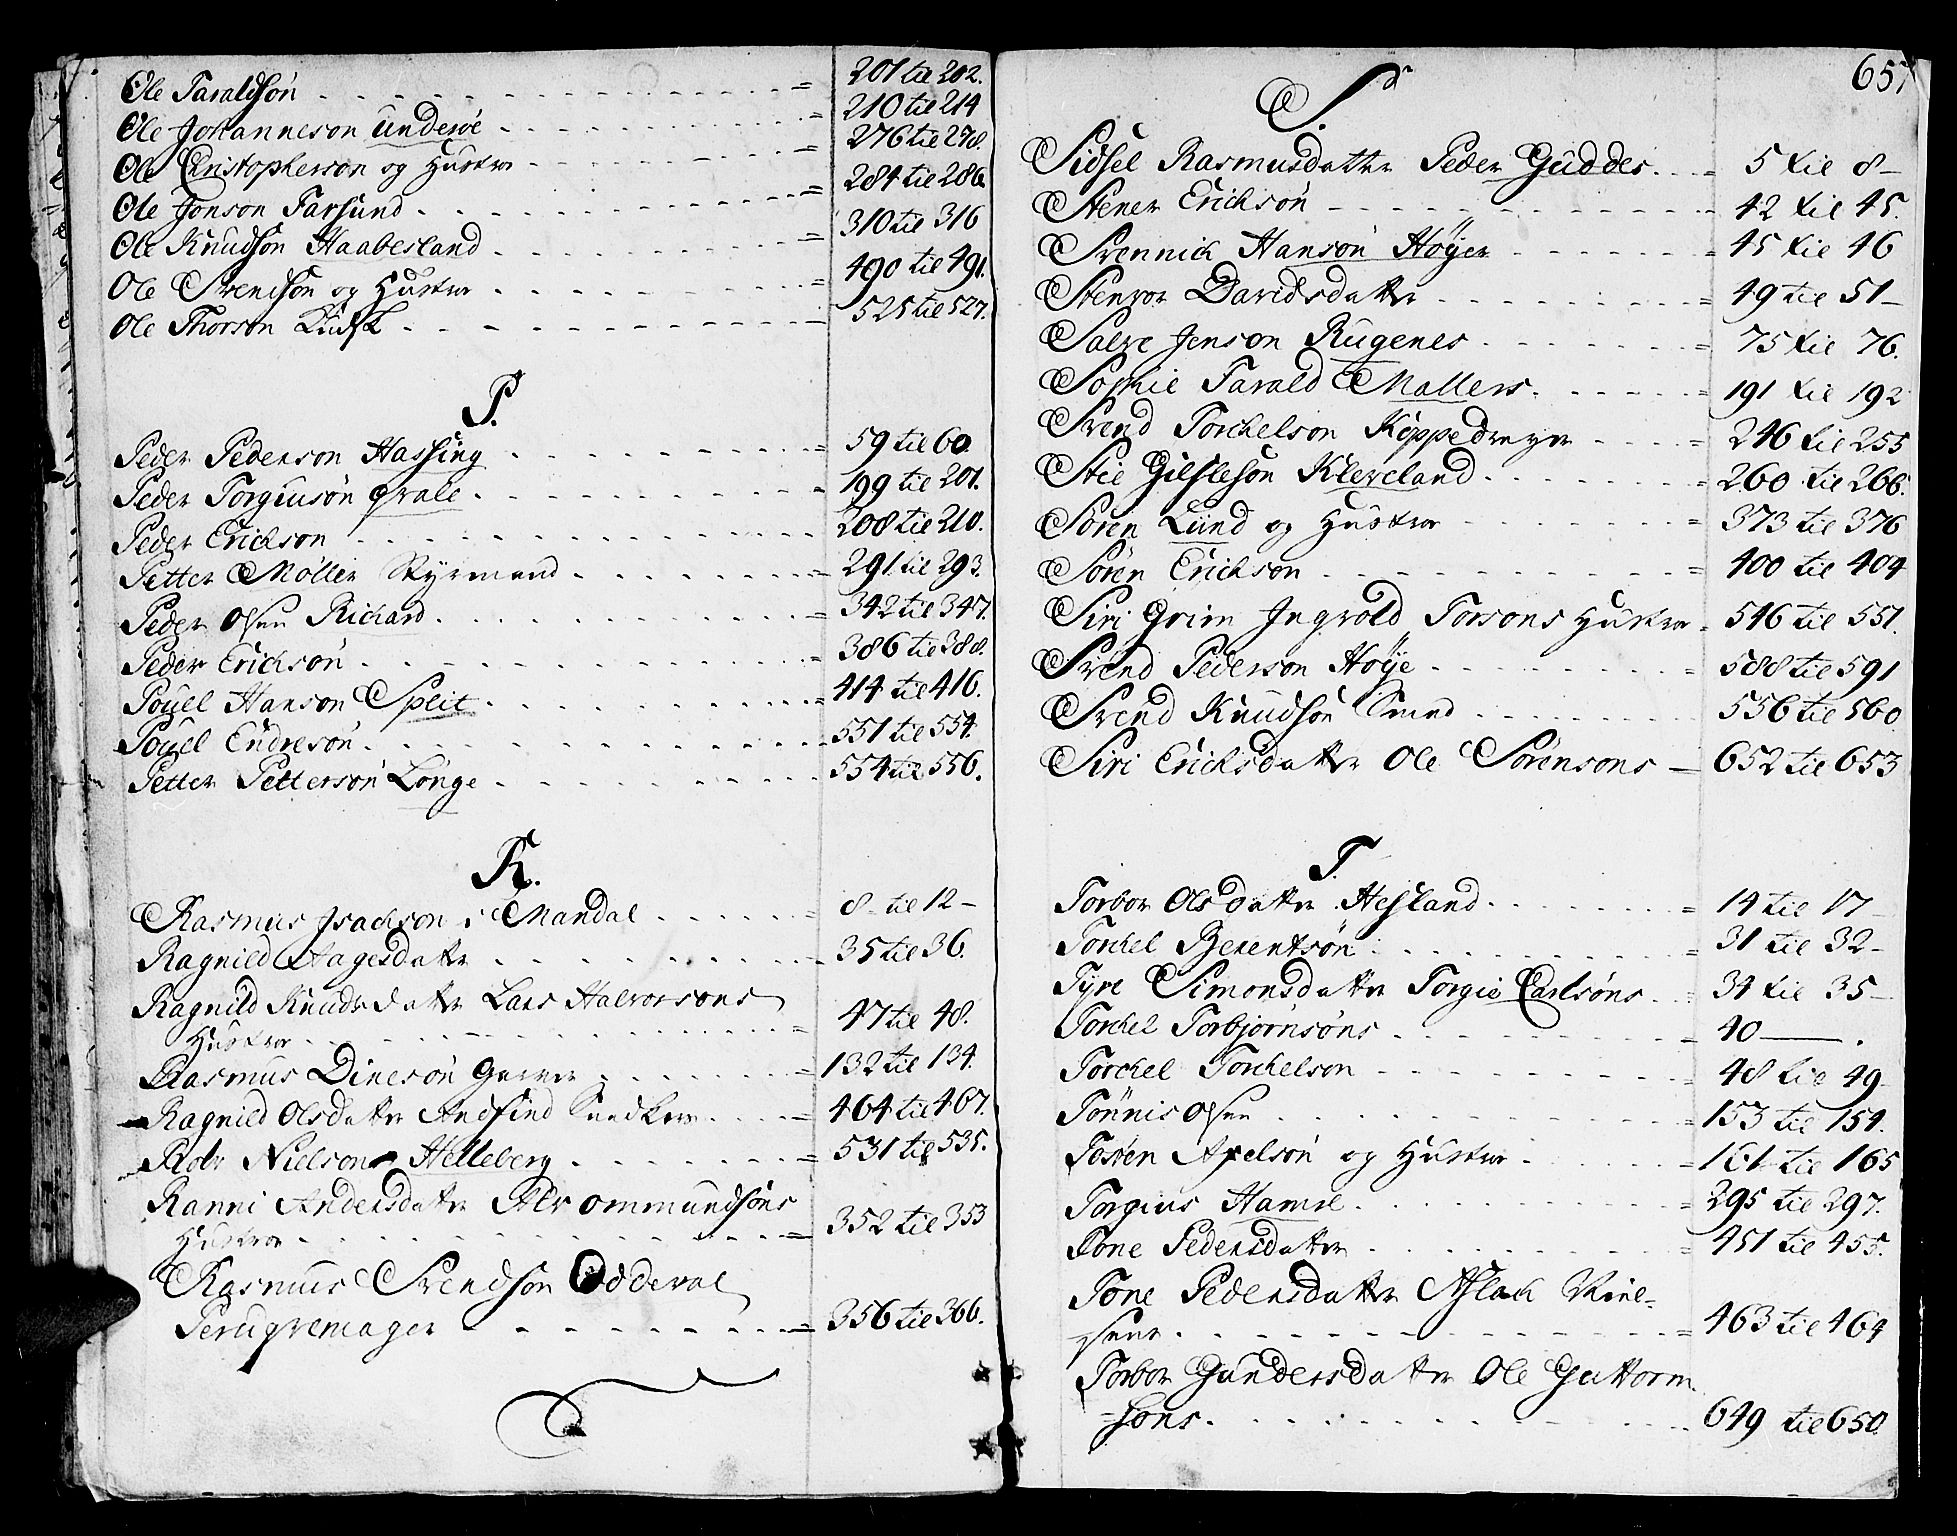 Ole Taraldsøn 201 til 202.
Ole Johanneson Underøe 210 til 214
Ole Christopherson og Hustroe 276 til 278.
Ole Jonson Farsund 284 til 286
Ole Knudsøn Haabesland 310 til 316
Ole Svendsøn og Hustroe 490 til 491.
Ole Thorson 525 til 527.
P.
Peder Pederson Hassing 59 til 60.
Peder Torgiusøn qvale 199 til 201.
Peder Erichson 208 til 210.
Petter Møller Styrmand 291 til 293.
Peder Olsen Richard 342 til 347.
Peder Erichsøn 386 til 388.
Pouel Hanson Spleit 414 til 416.
Pouel Endresøn 551 til 554.
Petter Pettersøn Longe 554 til 556.
R.
Rasmus Isachson i Mandal 8 til 12 -
Ragnild Aagesdatter 35 til 36.
Ragnild Knudsdatter Lars Halvorsons
Hustroe 47 til 48.
Rasmus Dinesøn Garver 132 til 134.
Ragnild Olsdatter Andfind 464 til 467.
Roer Nielson Helleberg 531 til 535.
Ranni Andersdatter Alv ommundsøns
Hustroe 352 til 353
Rasmus Svendsøn Oddeval
Peruqvemager 356 til 366.
657
S.
Sidsel Rasmusdatter Peder Guddes 5 til 8 -
Stener Erichsøn 42 til 45.
Svennich Hansøn Høyer 45 til 46
Stenvor Davidsdatter 49 til 51 -
Salve Jenson Rugenes 75 til 76.
Sophie Farald Møllers 191 til 192
Svend Torchelson Koppedreyer 246 til 255
Stie Gilsleson Kleveland 260 til 266.
Søren Lund og Hustroe 373 til 376
Søren Erichson 400 til 404
Siri Grim Ingvold Torsons Hustroe 546 til 551.
Svend Pederson Høye 588 til 591
Svend Knudsøn Smed 556 til 560
Siri Erichsdatter Ole Sørensons 652 til 653
T.
Torbor Olsdatter Hesland 14 til 17
Torchel Berentsøn 31 til 32 -
Tyre Simonsdatter Torgie Carlsøns 34 til 35 -
Torchel Torbjørnsøns 40 —.
Torchel Torchelson 48 til 49
Tønnis Olsen 153 til 154.
Tosten Axelsøn og Hustroe 161 til 165
Torgius Hamre 295 til 297.
Tone Pedersdatter 451 til 455.
Tone Pedersdatter Aslach
sens 463 til 464
Torbor Gundersdatter Ole Guttorm
-sons 649 til 650.